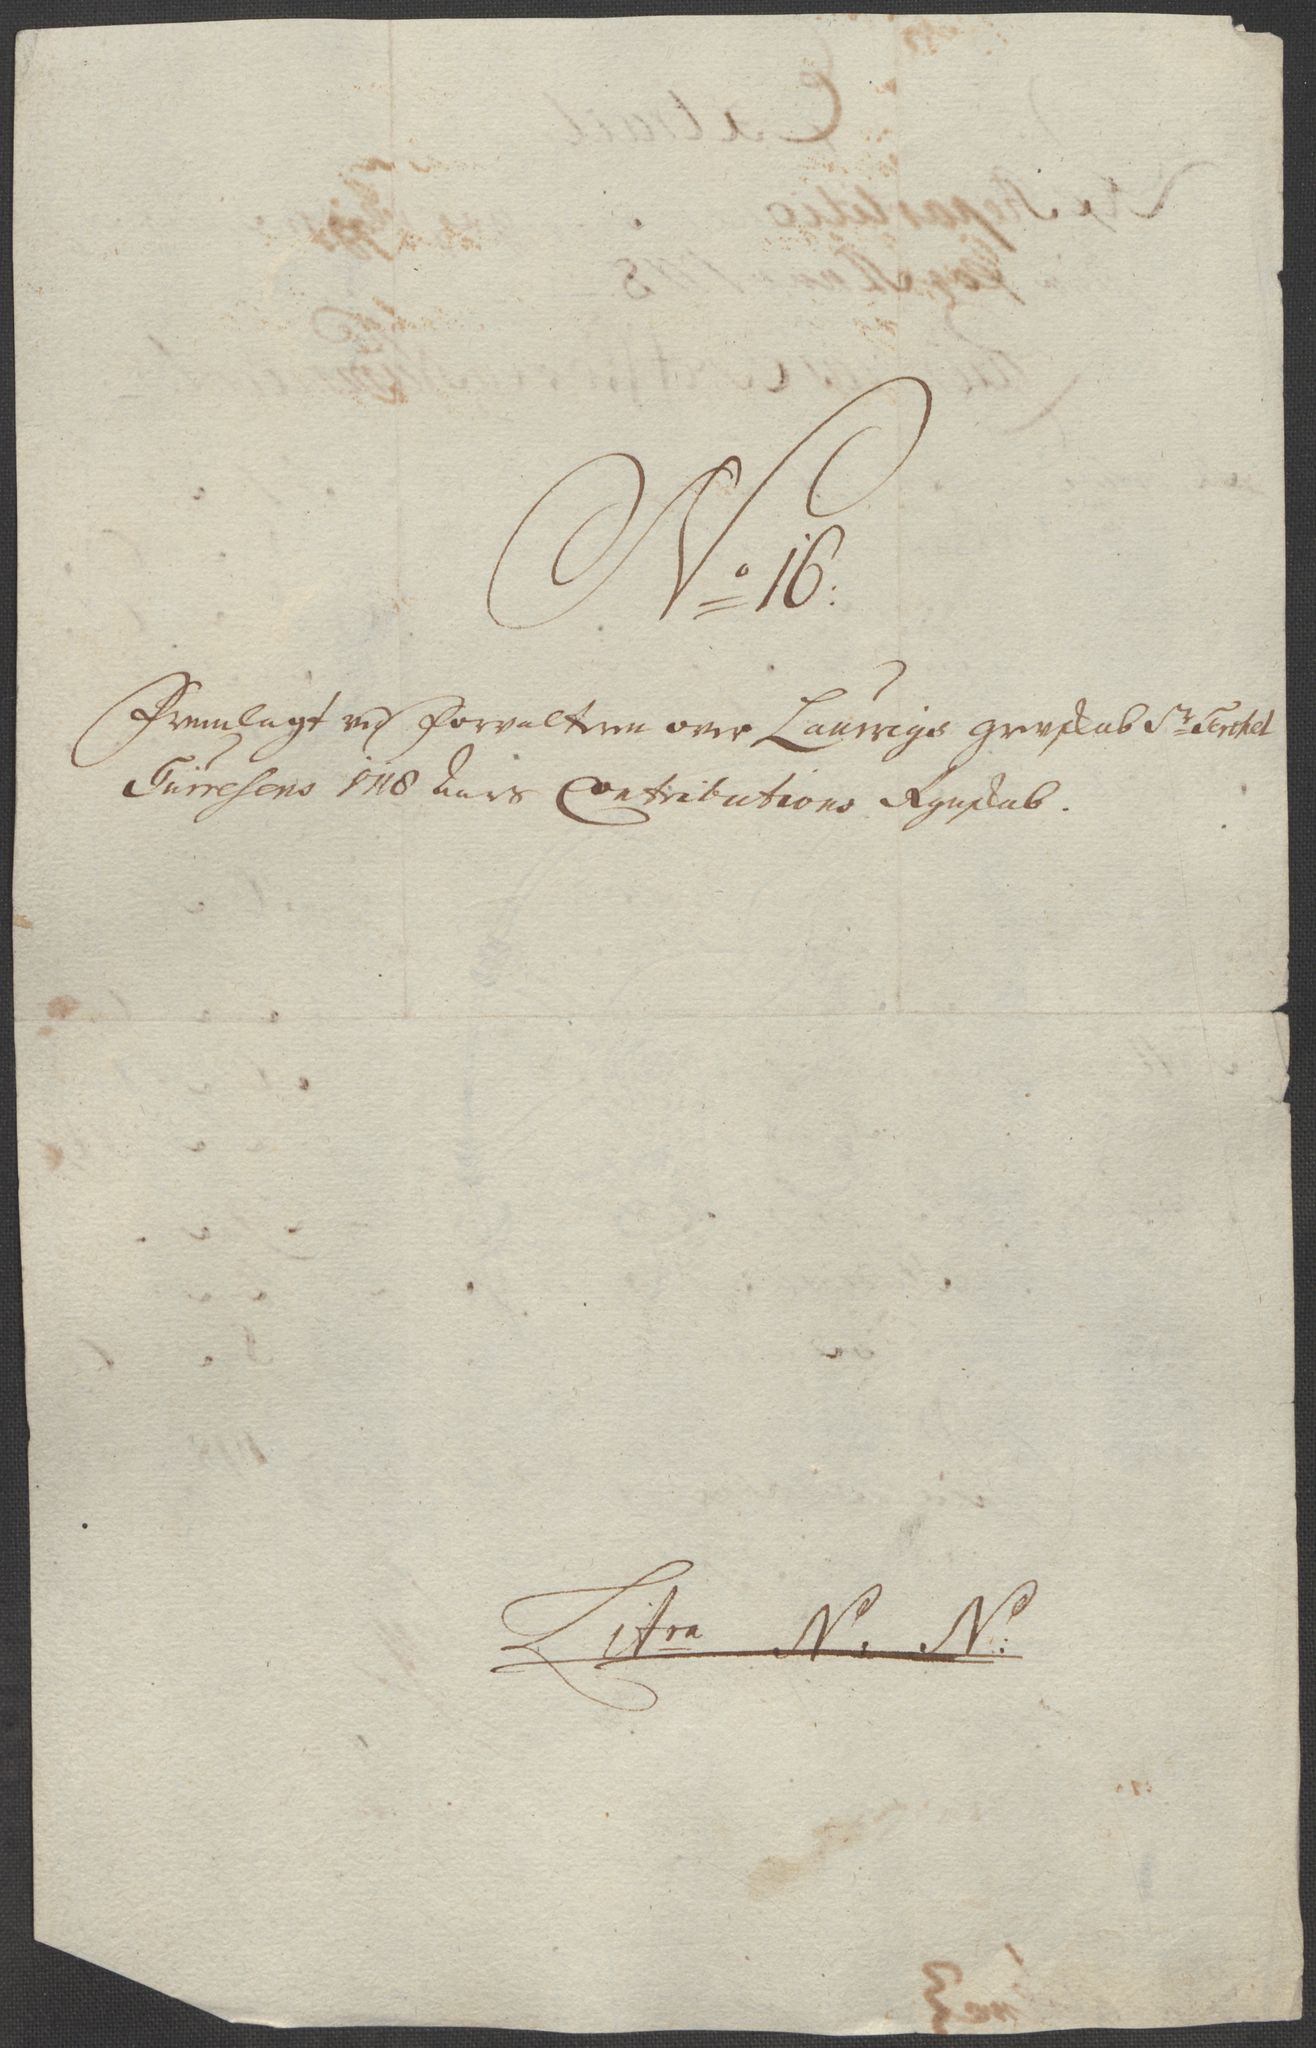 No 16:
Fremlagt ved Forvalteren over Laurvigs Grevskab Sr Terchel
Turresens 1718 Aars Contributions Regnskab.
Litra N. N: